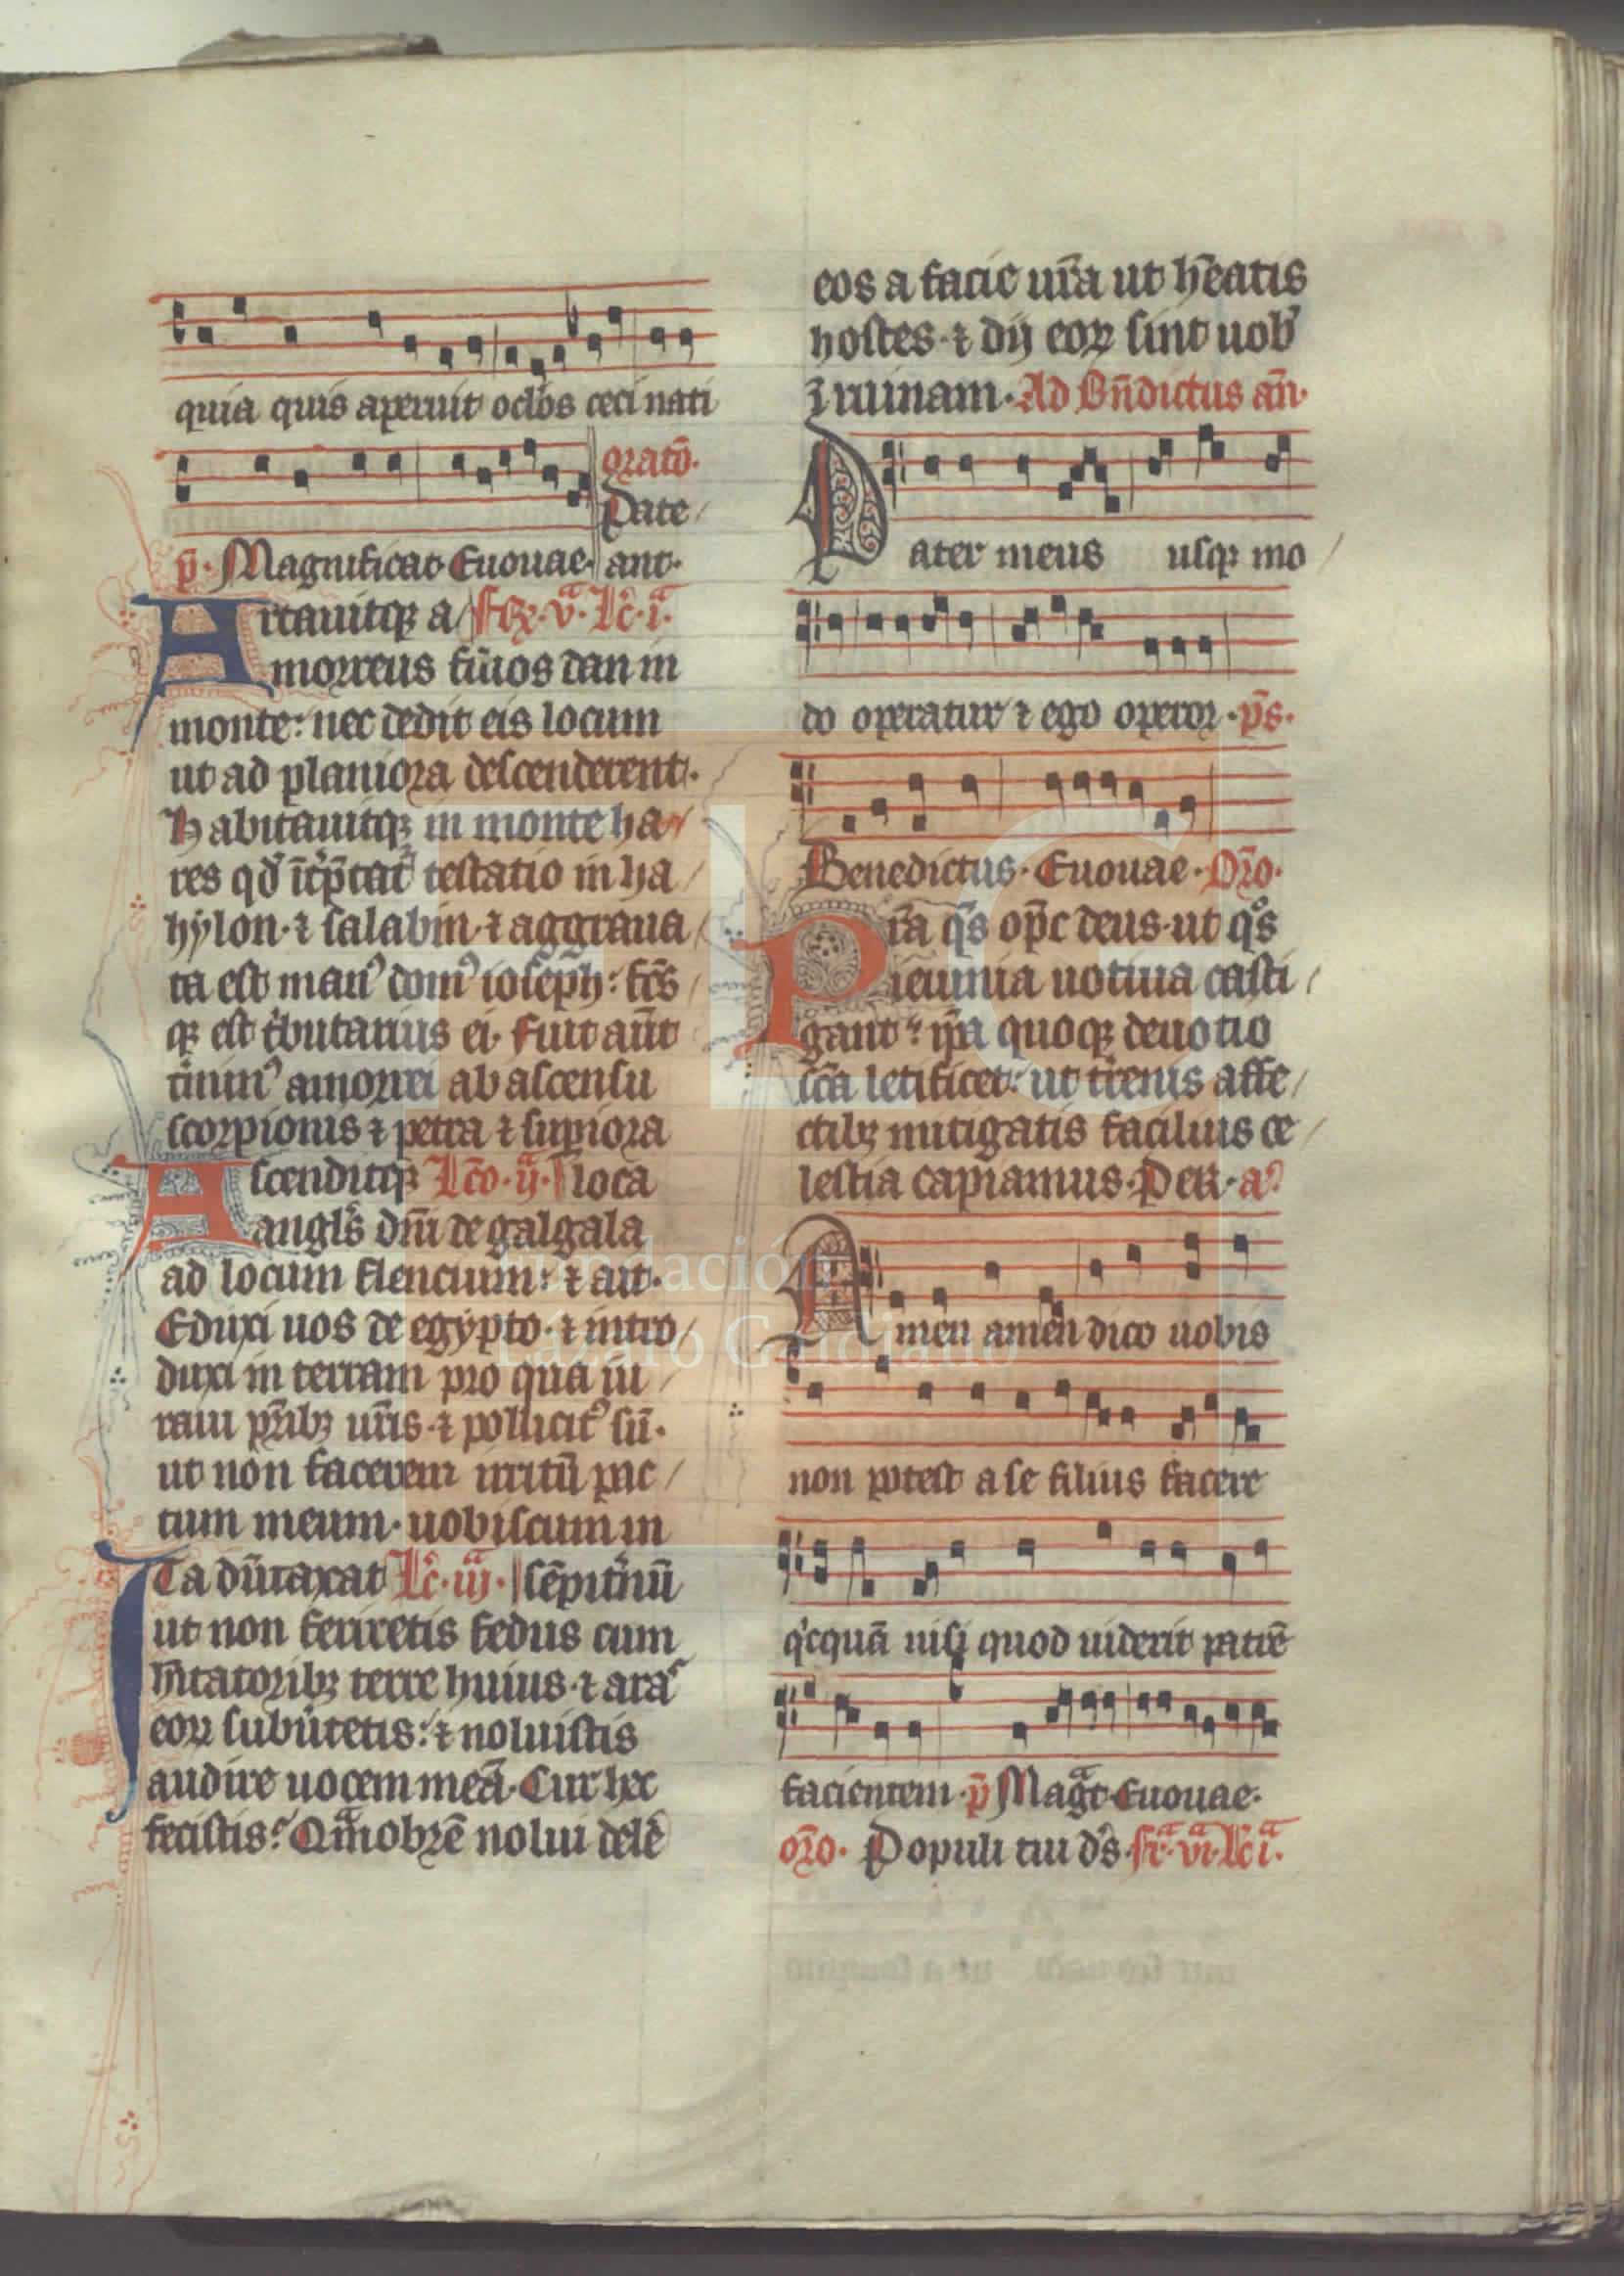 quia quis aperuit oclos ceci nati
orato᷎.
Pate
p̄. Magnificat Euouae. ant.
Artauitqꝫ a ffer. v.ª Lc̄. i.ª
morreus filios dan in
monte: nec dedit eis locum
ut ad planiora descenderent.
Habitauitqꝫ in monte ha
res qd' īt̄p̄tat' testatio in ha
hylon. ⁊ salabin. ⁊ aggraua
ta est man⁹ dom⁹ ioseph: fc̄s
qꝫ est tbutarius ei. Fuit aūt
t'min⁹ amorrei ab ascensu
scorpionis ⁊ petra ⁊ supiora
Ascenditqꝫ Lc̄o. ij.ª loca
angl's dn̄i de galgala
ad locum flencium: ⁊ ait.
Eduxi uos de egypto. ⁊ intro
duxi in terram pro qua iu
raui pr̄ibꝫ ur̄is. ⁊ pollicit⁹ sū.
ut non facerem irritū pac
tum meum. uobiscum in
Ita dūtaxat Lc̄. iij.ª sēpit'nū
ut non feriretis fedus cum
hītatoribꝫ terre huius. ⁊ aras
eoꝝ subūtetis: ⁊ noluistis
audire uocem meā. Cur hec
fecistis? Qªmobrē nolui delē
eos a facie ur̄a ut hēatis
hostes. ⁊ dij eoꝝ sint uob'
ī ruinam. Ad Bn̄dictus an̄.
Pater meus usqꝫ mo
do operatur ⁊ ego operor. ps̄.
Benedictus. Euouae. Or̄o.
Pr̄a qs̄ op̄c deus. ut qᵒs
ieiunia uotiua casti
gant. ip̄a quoqꝫ deuotio
sc̄a letificet: ut t'renis affe
ctibꝫ mitigatis facilius ce
lestia capiamus. Per. a⁹
Amen amen dico uobis
non potest a se filius facere
q'cquā nisi quod uiderit patrē
facientem. p̄ Magt. Euouae.
or̄o. Populi tui ds̄. fr̄.ª vi.ª Lc̄ i.ª
Fundación
Lázaro Galdiano